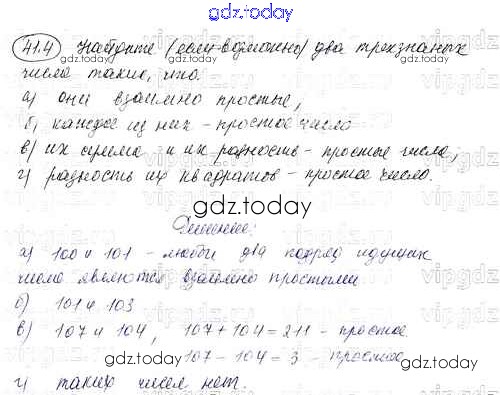 gdz.today
41.4 Найдите (если возможно) два трехзначных
числа такие, что:
а) они взаимно простые;
б) каждое из них - простое число
в) их сумма и их разность - простые числа;
г) разность их квадратов - простое число.
gdz.today
Решение:
а) 100 и 101 - любые два подряд идущих
числа являются взаимно простыми
б) 101 и 103
в) 107 и 104, 107 + 104 = 211 - простое
107 - 104 = 3 - простое
gdz.today
gdz.today
г) таких чисел нет.
gdz.today